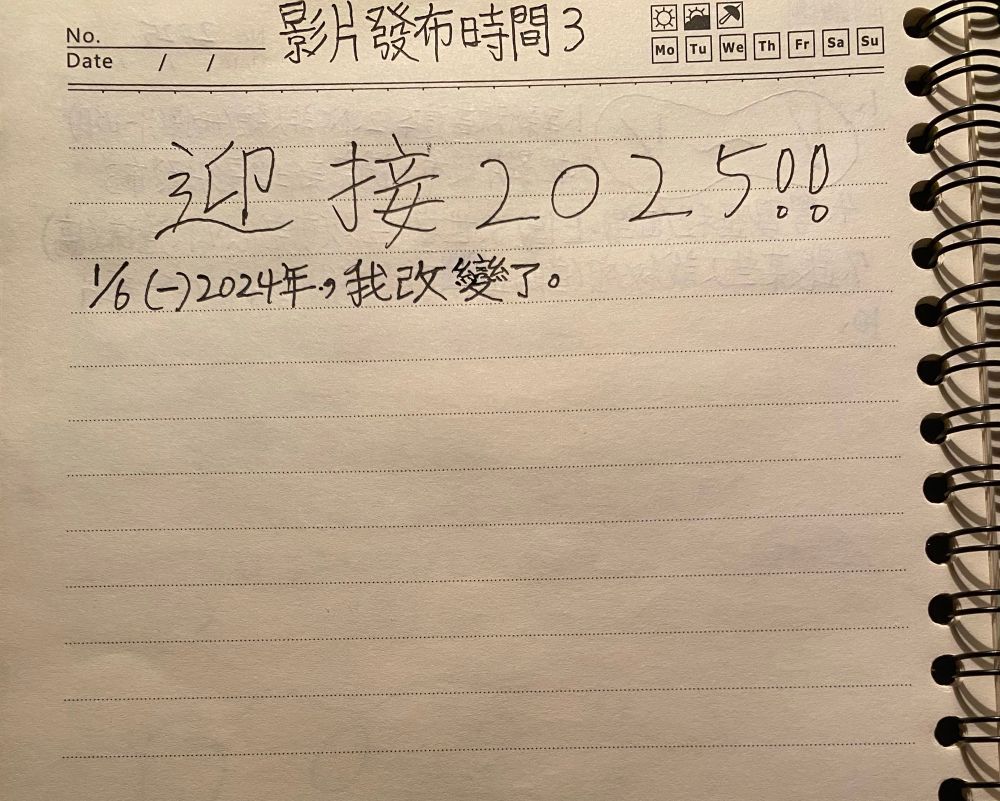 No. 影片發布時間3
Date / /
Mo Tu We Th Fr Sa Su
迎接2025!!
1/6 (一) 2024年,我改變了。